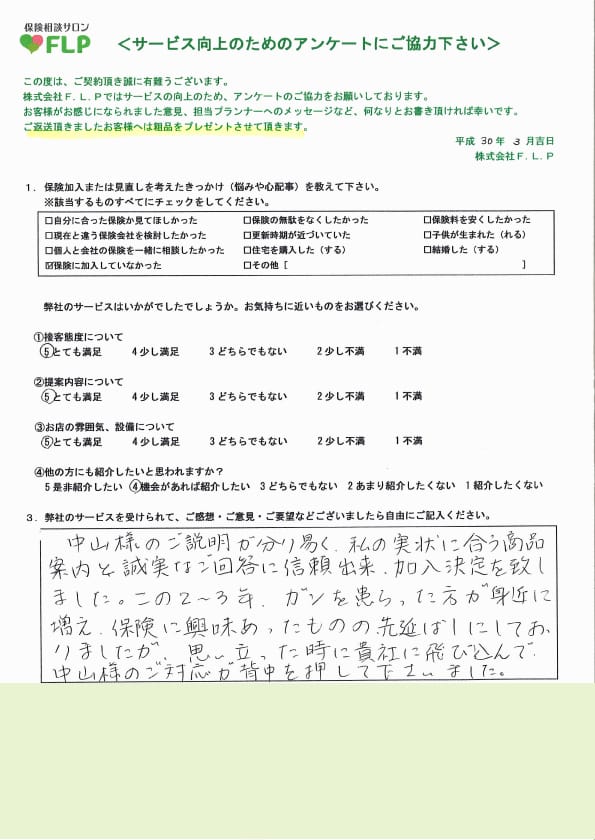 保険相談サロン
FLP
＜サービス向上のためのアンケートにご協力下さい＞
この度は、ご契約頂き誠に有難うございます。
株式会社Ｆ.Ｌ.Ｐではサービスの向上のため、アンケートのご協力をお願いしております。
お客様がお感じになられました意見、担当プランナーへのメッセージなど、何なりとお書き頂ければ幸いです。
ご返送頂きましたお客様へは粗品をプレゼントさせて頂きます。
平成 30年 3月吉日
株式会社Ｆ.Ｌ.Ｐ
1. 保険加入または見直しを考えたきっかけ（悩みや心配事）を教えて下さい。
※該当するものすべてにチェックをしてください。
□自分に合った保険か見てほしかった □保険の無駄をなくしたかった □保険料を安くしたかった
□現在と違う保険会社を検討したかった □更新時期が近づいていた □子供が生まれた（れる）
□個人と会社の保険を一緒に相談したかった □住宅を購入した（する） □結婚した（する）
☑保険に加入していなかった □その他［ ］
弊社のサービスはいかがでしたでしょうか。お気持ちに近いものをお選びください。
①接客態度について
5とても満足 4少し満足 3どちらでもない 2少し不満 1不満
②提案内容について
5とても満足 4少し満足 3どちらでもない 2少し不満 1不満
③お店の雰囲気、設備について
5とても満足 4少し満足 3どちらでもない 2少し不満 1不満
④他の方にも紹介したいと思われますか？
5是非紹介したい ④機会があれば紹介したい 3どちらでもない 2あまり紹介したくない 1紹介したくない
3. 弊社のサービスを受けられて、ご感想・ご意見・ご要望などございましたら自由にご記入ください。
中山様のご説明が分り易く、私の実状に合う商品
案内と誠実なご回答に信頼出来、加入決定を致し
ました。この2〜3年、ガンを患らった方が身近に
増え、保険に興味あったものの先延ばしにしてお
りましたが、思い立った時に貴社に飛び込んで、
中山様のご対応が背中を押して下さいました。